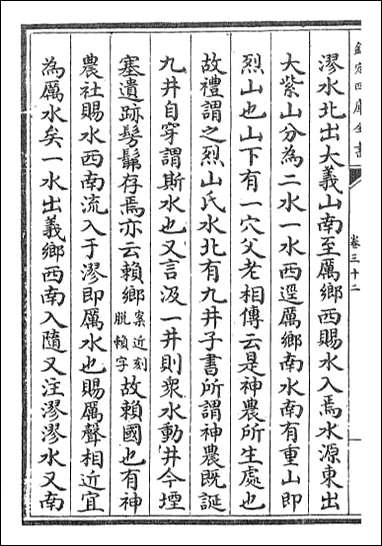 欽定四庫全書
卷三十二
漻水北出大義山南至厲鄉西賜水入焉水源東出
大紫山分為二水一水西逕厲鄉南水南有重山即
烈山也山下有一穴父老相傳云是神農所生處也
故禮謂之烈山氏水北有九井子書所謂神農既誕
九井自穿謂斯水也又言汲一井則衆水動井今堙
塞遺跡髣髴存焉亦云賴鄉案近刻脫賴字故賴國也有神
農社賜水西南流入于漻即厲水也賜厲聲相近宜
為厲水矣一水出義鄉西南入隨又注漻漻水又南